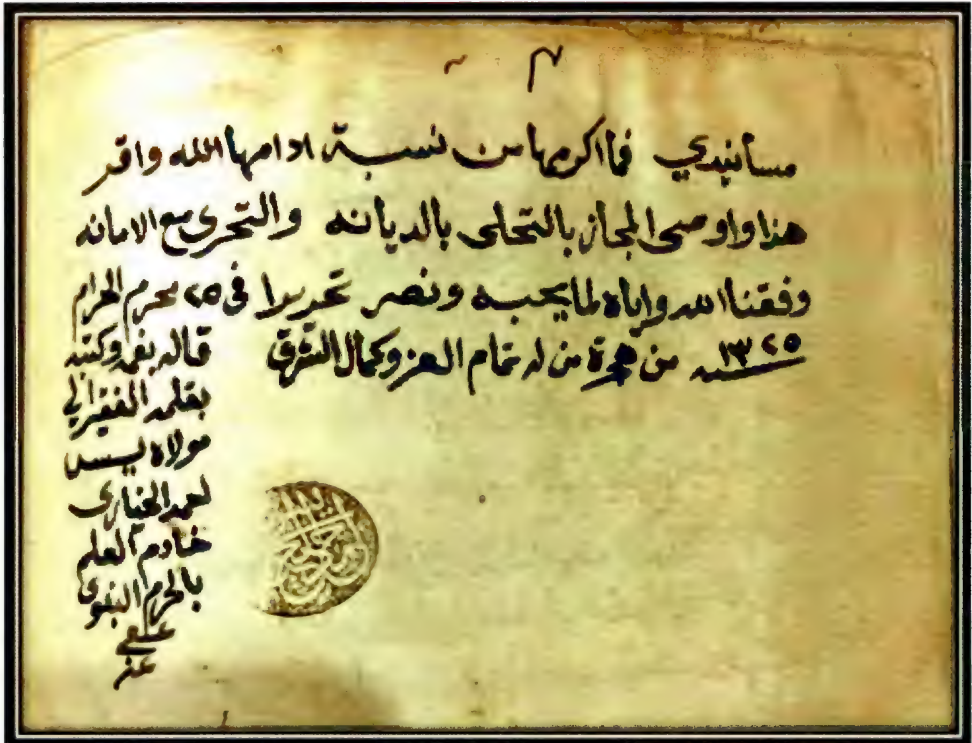 مسانيدي فما اكرمها من نسبة ادامها الله واقر
هذا واوصى المجاز بالتحلى بالديانه والتحرى مع الامانه
وفقنا الله واياه لما يحبه ونصر تحريرا فى ٢٥ محرم الحرام
١٣٢٥ من هجرة من له تمام العز وكمال الشرف
قاله بفمه وكتبه
بقلمه الفقير الي
مولاه يسن
احمد الخيارى
خادم العلم
بالحرم النبوى
عفى
عنه